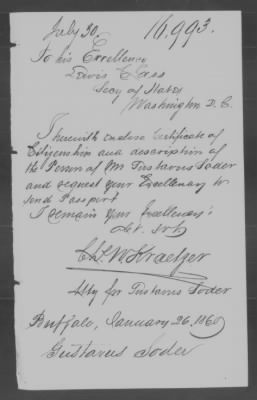 July 30.
16,993.
To his Excellency
Lewis Cass
Secy of State
Washington D. C.
I herewith enclose Certificate of
Citizenship and description of
the Person of Mr Gustavus Soder
and request your Excellency to
send Passport
I remain your Excellency's
Obt. Svt
Chs. W Kraetzer
Atty for Gustavus Soder
Buffalo, January 26. 1860
Gustavus Soder